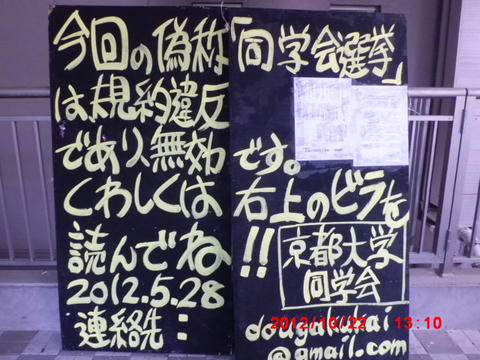 今回の偽称「同学会選挙」
は規約違反
であり、無効です。
くわしくは右上のビラを
読んでね!!
2012.5.28
京都大学
同学会
連絡先:
@gmail.com
2012/10/22 13:10